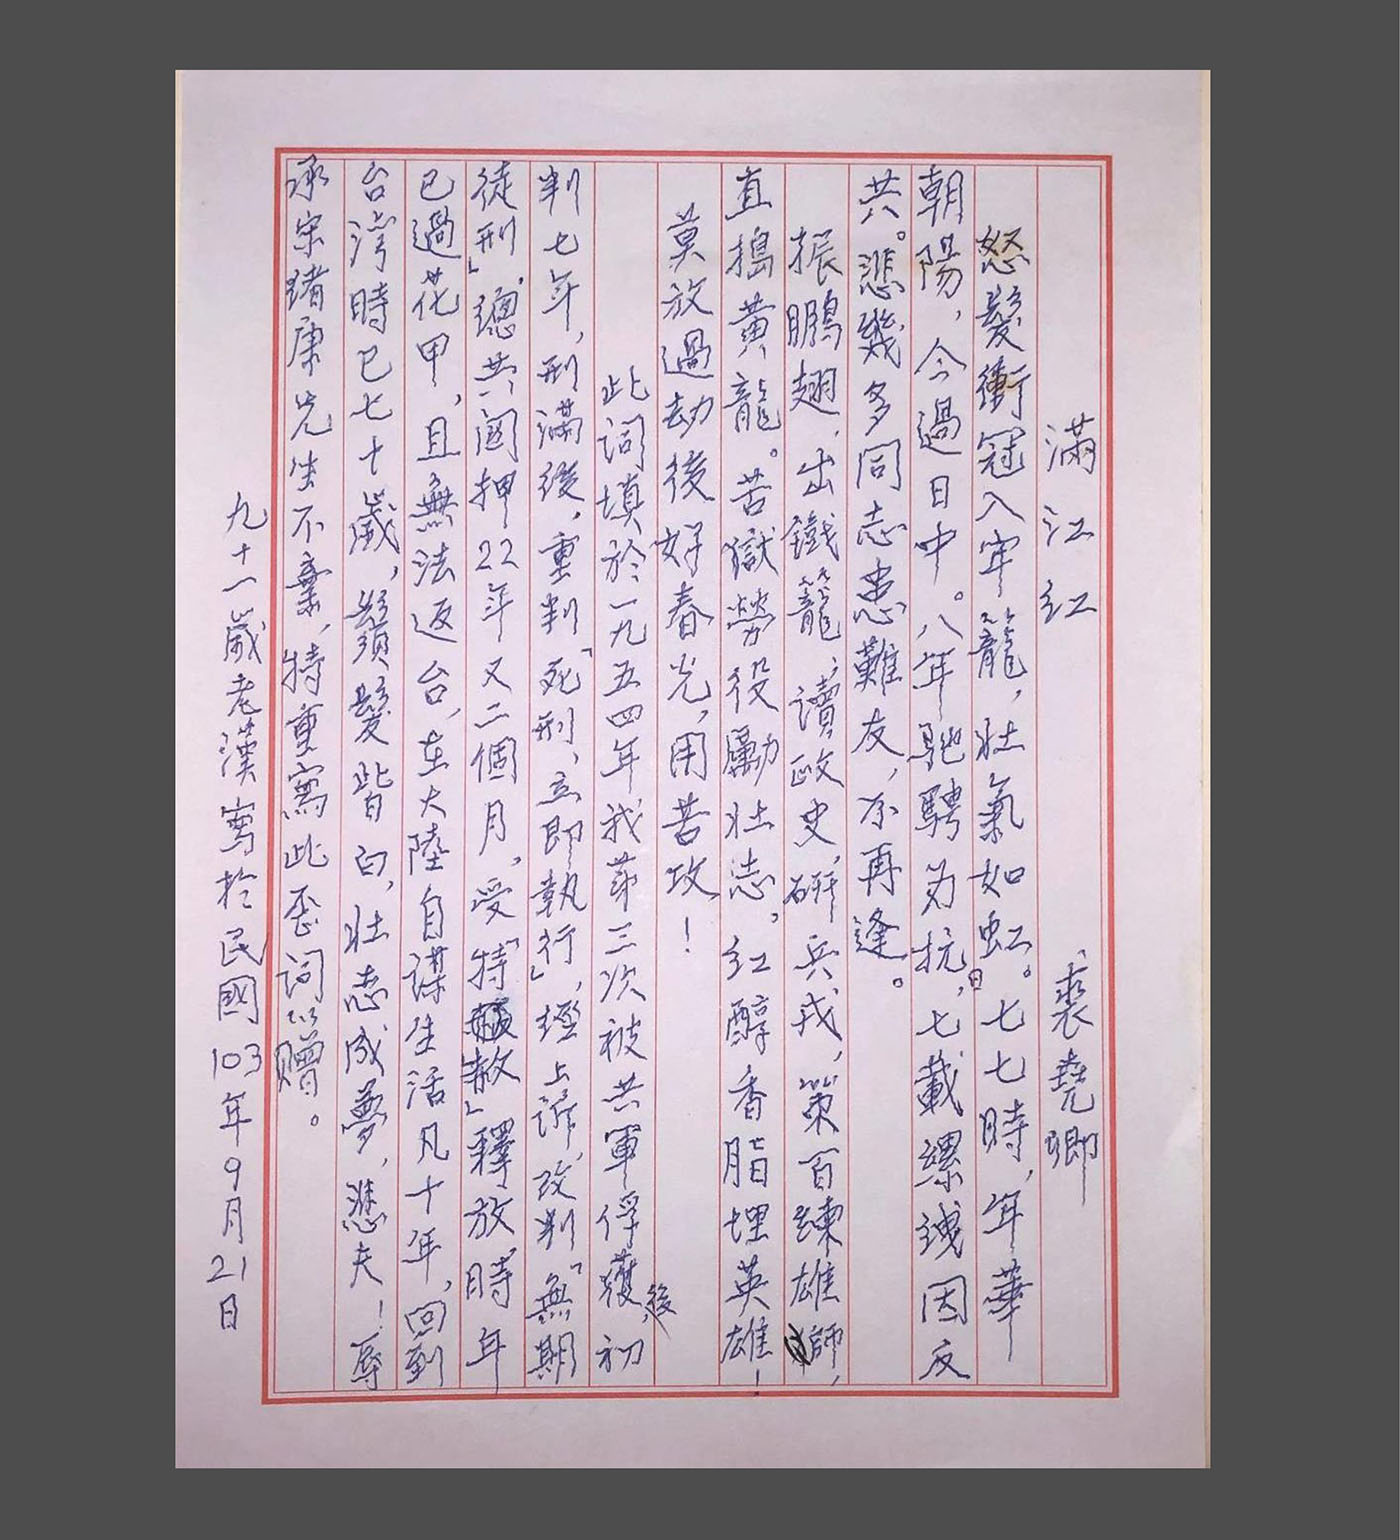 滿江红 裘堯卿
怒髮衝冠入牢籠，壯氣如虹。七七時，年華
朝陽，今過日中。八年馳騁为抗日，七載縲絏因反
共。悲幾多同志患難友，不再逢。
振鵬翅，出鐵籠，讀政史，研兵戎，策百練雄師，
直搗黃龍。苦獄勞役勵壮志，红醇香脂埋英雄！
莫放過劫後好春光，用苦攻！
此词填於一九五四年我苐三次被共軍俘獲後，初
判七年，刑滿後，重判「死刑，立即執行」，經上訴，改判「無期
徒刑」，總共関押22年又二個月，受「特赦」釋放時，年
已過花甲，且無法返台，在大陸自謀生活凡十年，回到
台灣時已七十歲，鬚髮皆白，壮志成夢，悲夫！辱
承宗緒康先生不棄，特重寫此歪词以赠。
九十一歲老漢寫於民國103年9月21日